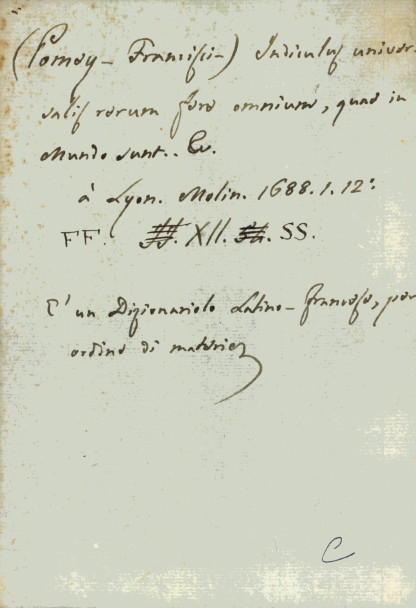 (Pomey- Francisci-) Indiculus univer-
salis rerum fere omnium, quae in
Mundo sunt.. &c.
à Lyon. Molin. 1688. 1. 12:
FF. XII. SS.
E' un Dizionariolo Latino-francese, per
ordine di materie
C